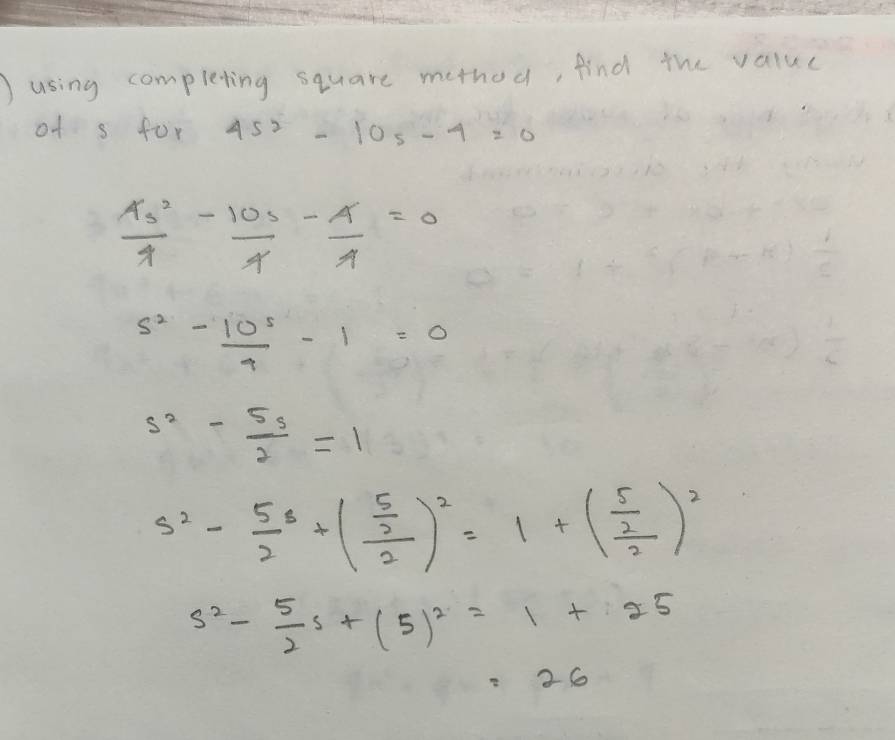 ) using completing square method, find the value
of s for 4s² - 10s - 4 = 0
4s²/4 - 10s/4 - 4/4 = 0
s² - 10s/4 - 1 = 0
s² - 5s/2 = 1
s² - 5/2 s + ((5/2)/2)² = 1 + ((5/2)/2)²
s² - 5/2 s + (5)² = 1 + 25
= 26